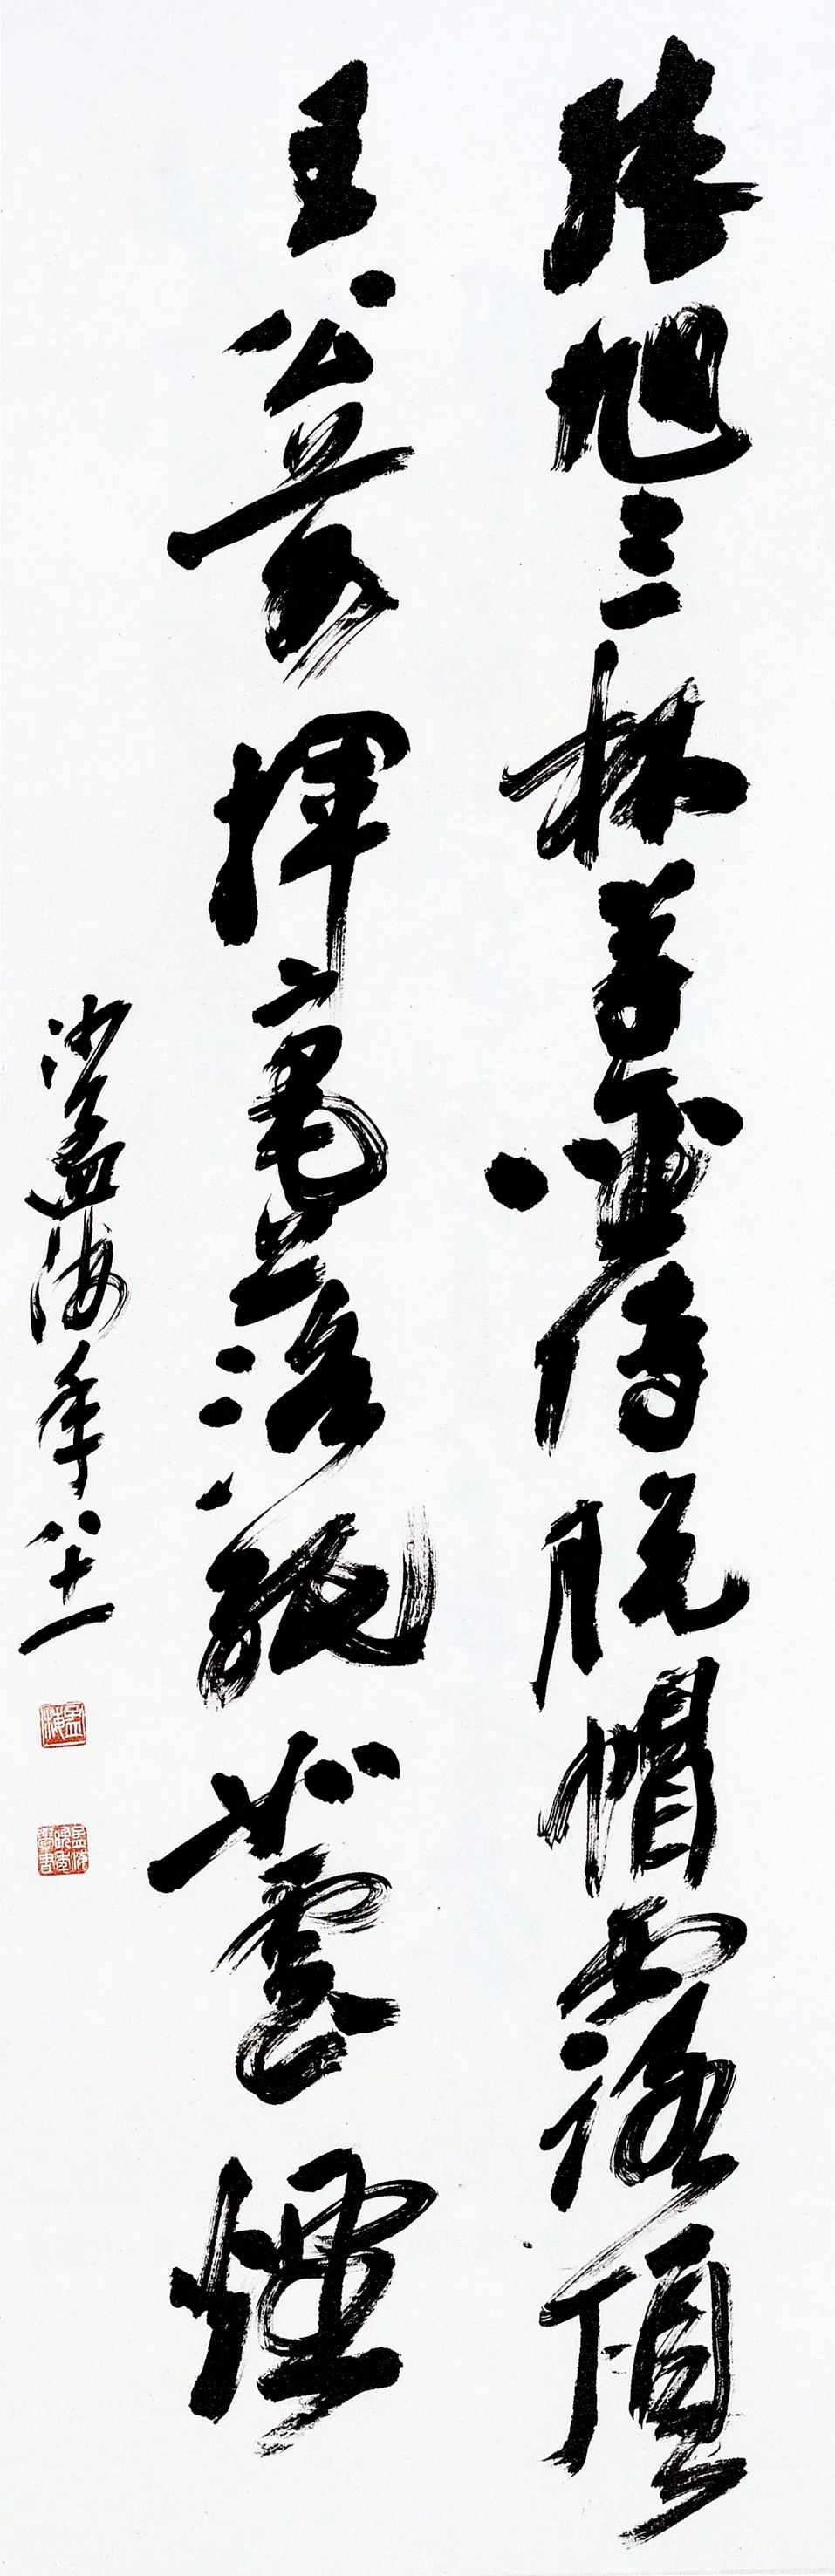 張旭三杯草聖傳脫帽露頂
王公前揮毫落紙如雲煙
沙孟海年八十一
孟海